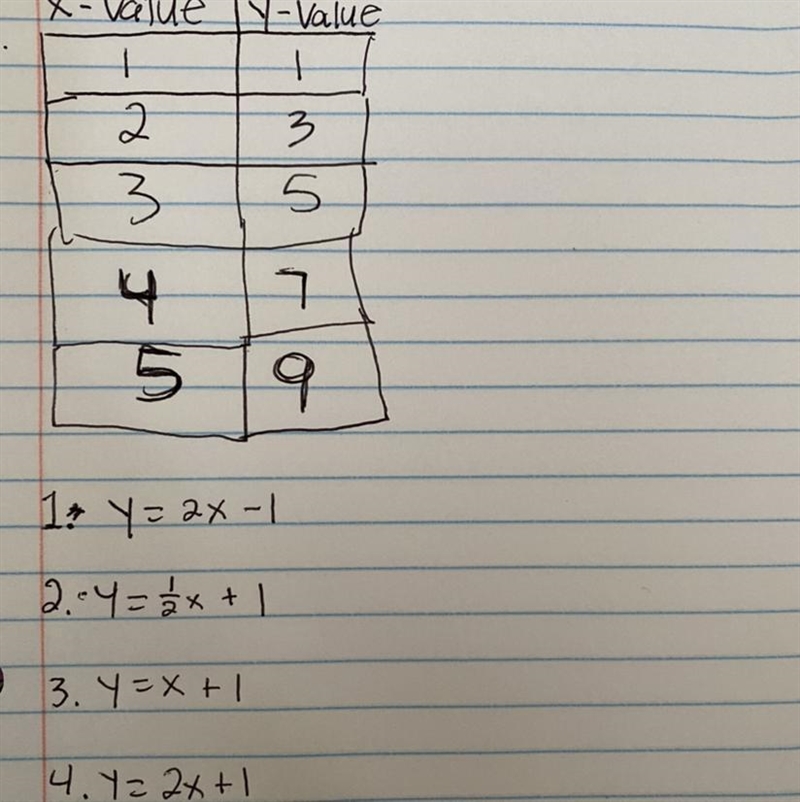 x-value y-value
1 1
2 3
3 5
4 7
5 9
1. y = 2x - 1
2. y = 1/2 x + 1
3. y = x + 1
4. y = 2x + 1